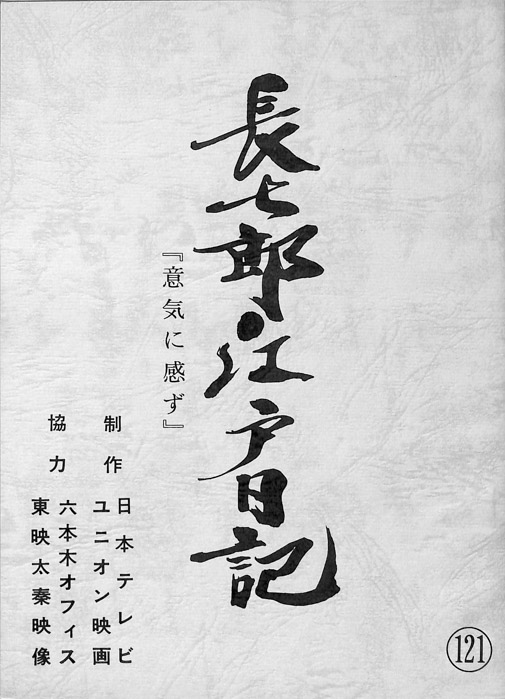 長七郎江戸日記
『意気に感ず』
制作
日本テレビ
ユニオン映画
協力
六本木オフィス
東映太秦映像
121